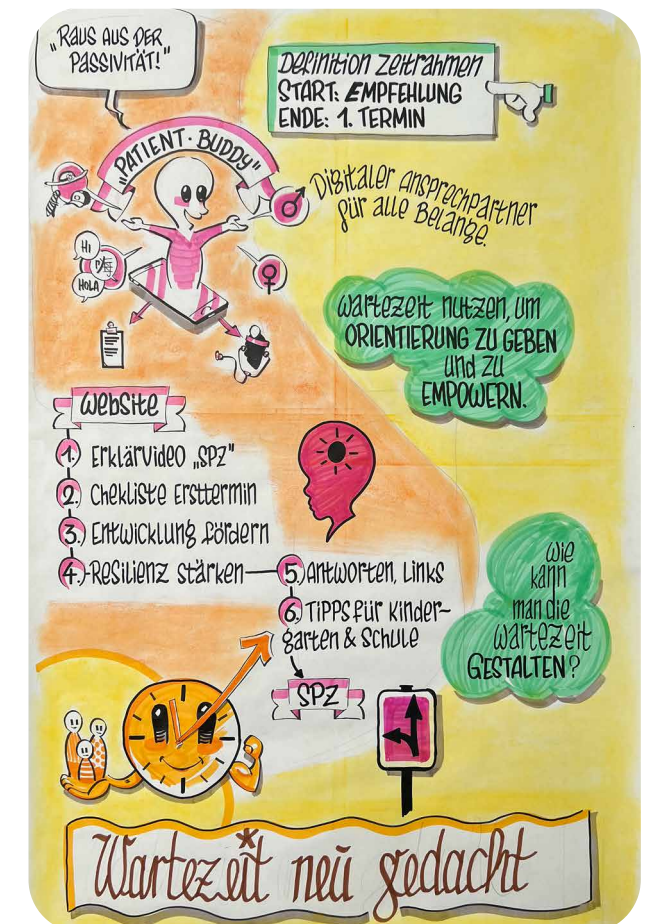 „RAUS AUS DER
PASSIVITÄT!"
Definition Zeitrahmen
START: EMPFEHLUNG
ENDE: 1. TERMIN
„PATIENT · BUDDY"
Digitaler Ansprechpartner
für alle Belange.
HI
HOLA
Wartezeit nutzen, um
ORIENTIERUNG ZU GEBEN
und zu
EMPOWERN.
Website
1. Erklärvideo „SPZ"
2. Chekliste Ersttermin
3. Entwicklung fördern
4. Resilienz stärken
5. Antworten, Links
6. Tipps für Kinder-
garten & Schule
SPZ
Wie
kann
man die
Wartezeit
GESTALTEN?
Wartezeit* neu gedacht